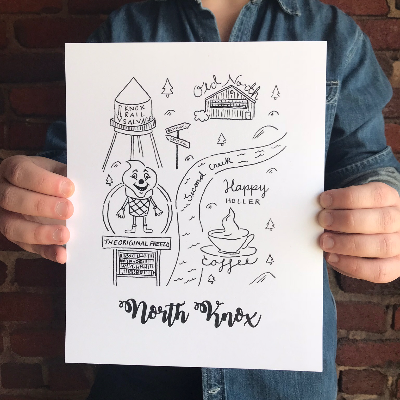 Old North
KNOX
RAIL
SALVAGE
Second Creek
Happy
HOLLER
THE ORIGINAL FREEZO
Coffee
North Knox